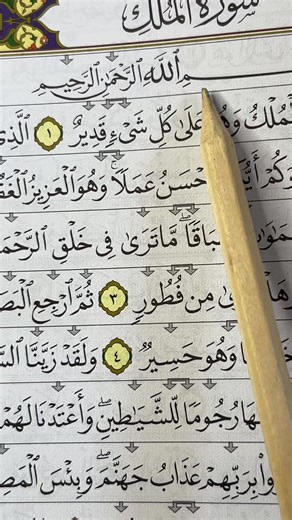 سورة الملك
ـمِ اللَّهِ الرَّحْمَٰنِ الرَّحِيمِ
لْمُلْكُ وَهُ عَلَىٰ كُلِّ شَيْءٍ قَدِيرٌ ١ الَّذِ
وَكُمْ أَيُّ حْسَنُ عَمَلًا ۚ وَهُوَ الْعَزِيزُ الْغَفُ
مَاوَا بَاقًا ۖ مَّا تَرَىٰ فِي خَلْقِ الرَّحْمَٰ
هَلْ ىٰ مِن فُطُورٍ ٣ ثُمَّ ارْجِعِ الْبَصَ
خَا وَهُوَ حَسِيرٌ ٤ وَلَقَدْ زَيَّنَّا السَّ
هَا رُجُومًا لِّلشَّيَاطِينِ ۖ وَأَعْتَدْنَا لَهُمْ
وا بِرَبِّهِمْ عَذَابُ جَهَنَّمَ ۖ وَبِئْسَ الْمَصِ